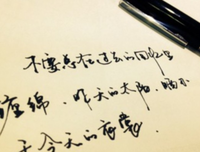 不要总在过去的回忆里
缠绵，昨天的太阳，晒不
干今天的衣裳。